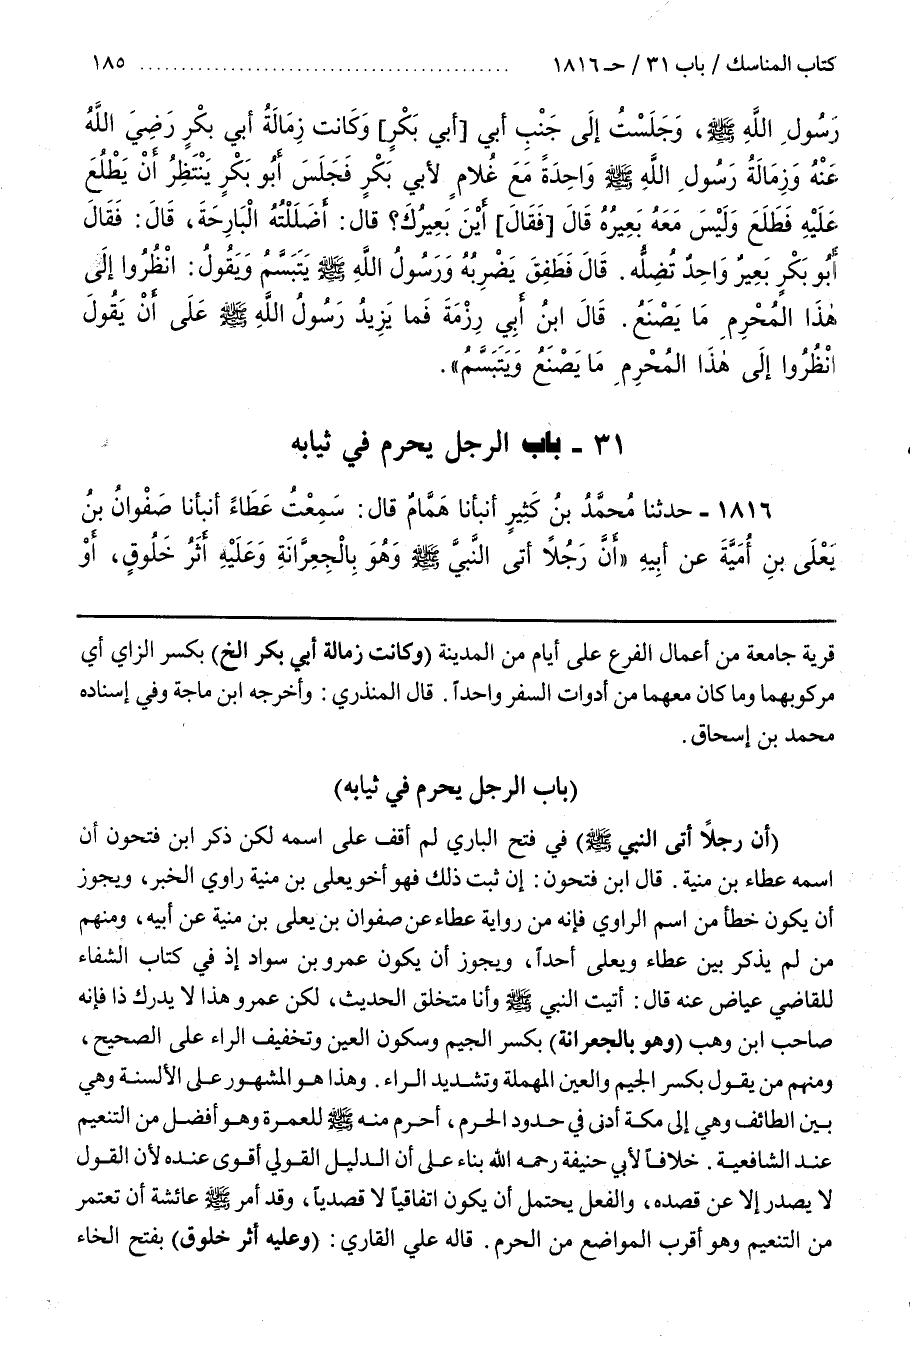 كتاب المناسك / باب ٣١ / حـ ١٨١٦ ............................................ ١٨٥
رَسُولِ اللَّهِ ﷺ، وَجَلَسْتُ إلَى جَنْبِ أبي [أبي بَكْرٍ] وَكَانت زِمَالَةُ أبي بكْرٍ رَضِيَ اللَّهُ
عَنْهُ وَزِمَالَةُ رَسُولِ اللَّهِ ﷺ وَاحِدَةً مَعَ غُلَامٍ لأبي بَكْرٍ فَجَلَسَ أَبُو بَكْرٍ يَنْتَظِرُ أَنْ يَطْلُعَ
عَلَيْهِ فَطَلَعَ وَلَيْسَ مَعَهُ بَعِيرُهُ قَالَ [فَقَالَ] أَيْنَ بَعِيرُكَ؟ قال: أَضْلَلْتُهُ الْبَارِحَةَ، قَالَ: فَقَالَ
أَبُو بَكْرٍ بَعِيرٌ وَاحِدٌ تُضِلُّه. قَالَ فَطَفِقَ يَضْرِبُهُ وَرَسُولُ اللَّهِ ﷺ يَتَبَسَّمُ وَيَقُولُ: انْظُرُوا إلَى
هٰذَا المُحْرِمِ مَا يَصْنَعُ. قَالَ ابنُ أَبي رِزْمَةَ فَما يَزِيدُ رَسُولُ اللَّهِ ﷺ عَلَى أَنْ يَقُولَ
انْظُرُوا إلَى هٰذَا المُحْرِمِ مَا يَصْنَعُ وَيَتَبَسَّمُ».
٣١ - باب الرجل يحرم في ثيابه
١٨١٦ - حدثنا مُحمَّدُ بنُ كَثِيرٍ أنبأنا هَمَّامٌ قال: سَمِعْتُ عَطَاءً أنبأنا صَفْوانُ بنُ
يَعْلَى بنِ أُمَيَّةَ عن أبِيهِ «أَنَّ رَجُلاً أتى النَّبيَّ ﷺ وَهُوَ بِالْجِعِرَّانَةِ وَعَلَيْهِ أَثَرُ خَلُوقٍ، أَوْ
قرية جامعة من أعمال الفرع على أيام من المدينة (وكانت زمالة أبي بكر الخ) بكسر الزاي أي
مركوبهما وما كان معهما من أدوات السفر واحداً. قال المنذري: وأخرجه ابن ماجة وفي إسناده
محمد بن إسحاق.
(باب الرجل يحرم في ثيابه)
(أن رجلاً أتى النبي ﷺ) في فتح الباري لم أقف على اسمه لكن ذكر ابن فتحون أن
اسمه عطاء بن منية. قال ابن فتحون: إن ثبت ذلك فهو أخو يعلى بن منية راوي الخبر، ويجوز
أن يكون خطأ من اسم الراوي فإنه من رواية عطاء عن صفوان بن يعلى بن منية عن أبيه، ومنهم
من لم يذكر بين عطاء ويعلى أحداً، ويجوز أن يكون عمرو بن سواد إذ في كتاب الشفاء
للقاضي عياض عنه قال: أتيت النبي ﷺ وأنا متخلق الحديث، لكن عمرو هذا لا يدرك ذا فإنه
صاحب ابن وهب (وهو بالجعرانة) بكسر الجيم وسكون العين وتخفيف الراء على الصحيح،
ومنهم من يقول بكسر الجيم والعين المهملة وتشديد الراء. وهذا هو المشهور على الألسنة وهي
بين الطائف وهي إلى مكة أدنى في حدود الحرم، أحرم منه ﷺ للعمرة وهو أفضل من التنعيم
عند الشافعية. خلافاً لأبي حنيفة رحمه الله بناء على أن الدليل القولي أقوى عنده لأن القول
لا يصدر إلا عن قصده، والفعل يحتمل أن يكون اتفاقياً لا قصدياً، وقد أمر ﷺ عائشة أن تعتمر
من التنعيم وهو أقرب المواضع من الحرم. قاله علي القاري: (وعليه أثر خلوق) بفتح الخاء